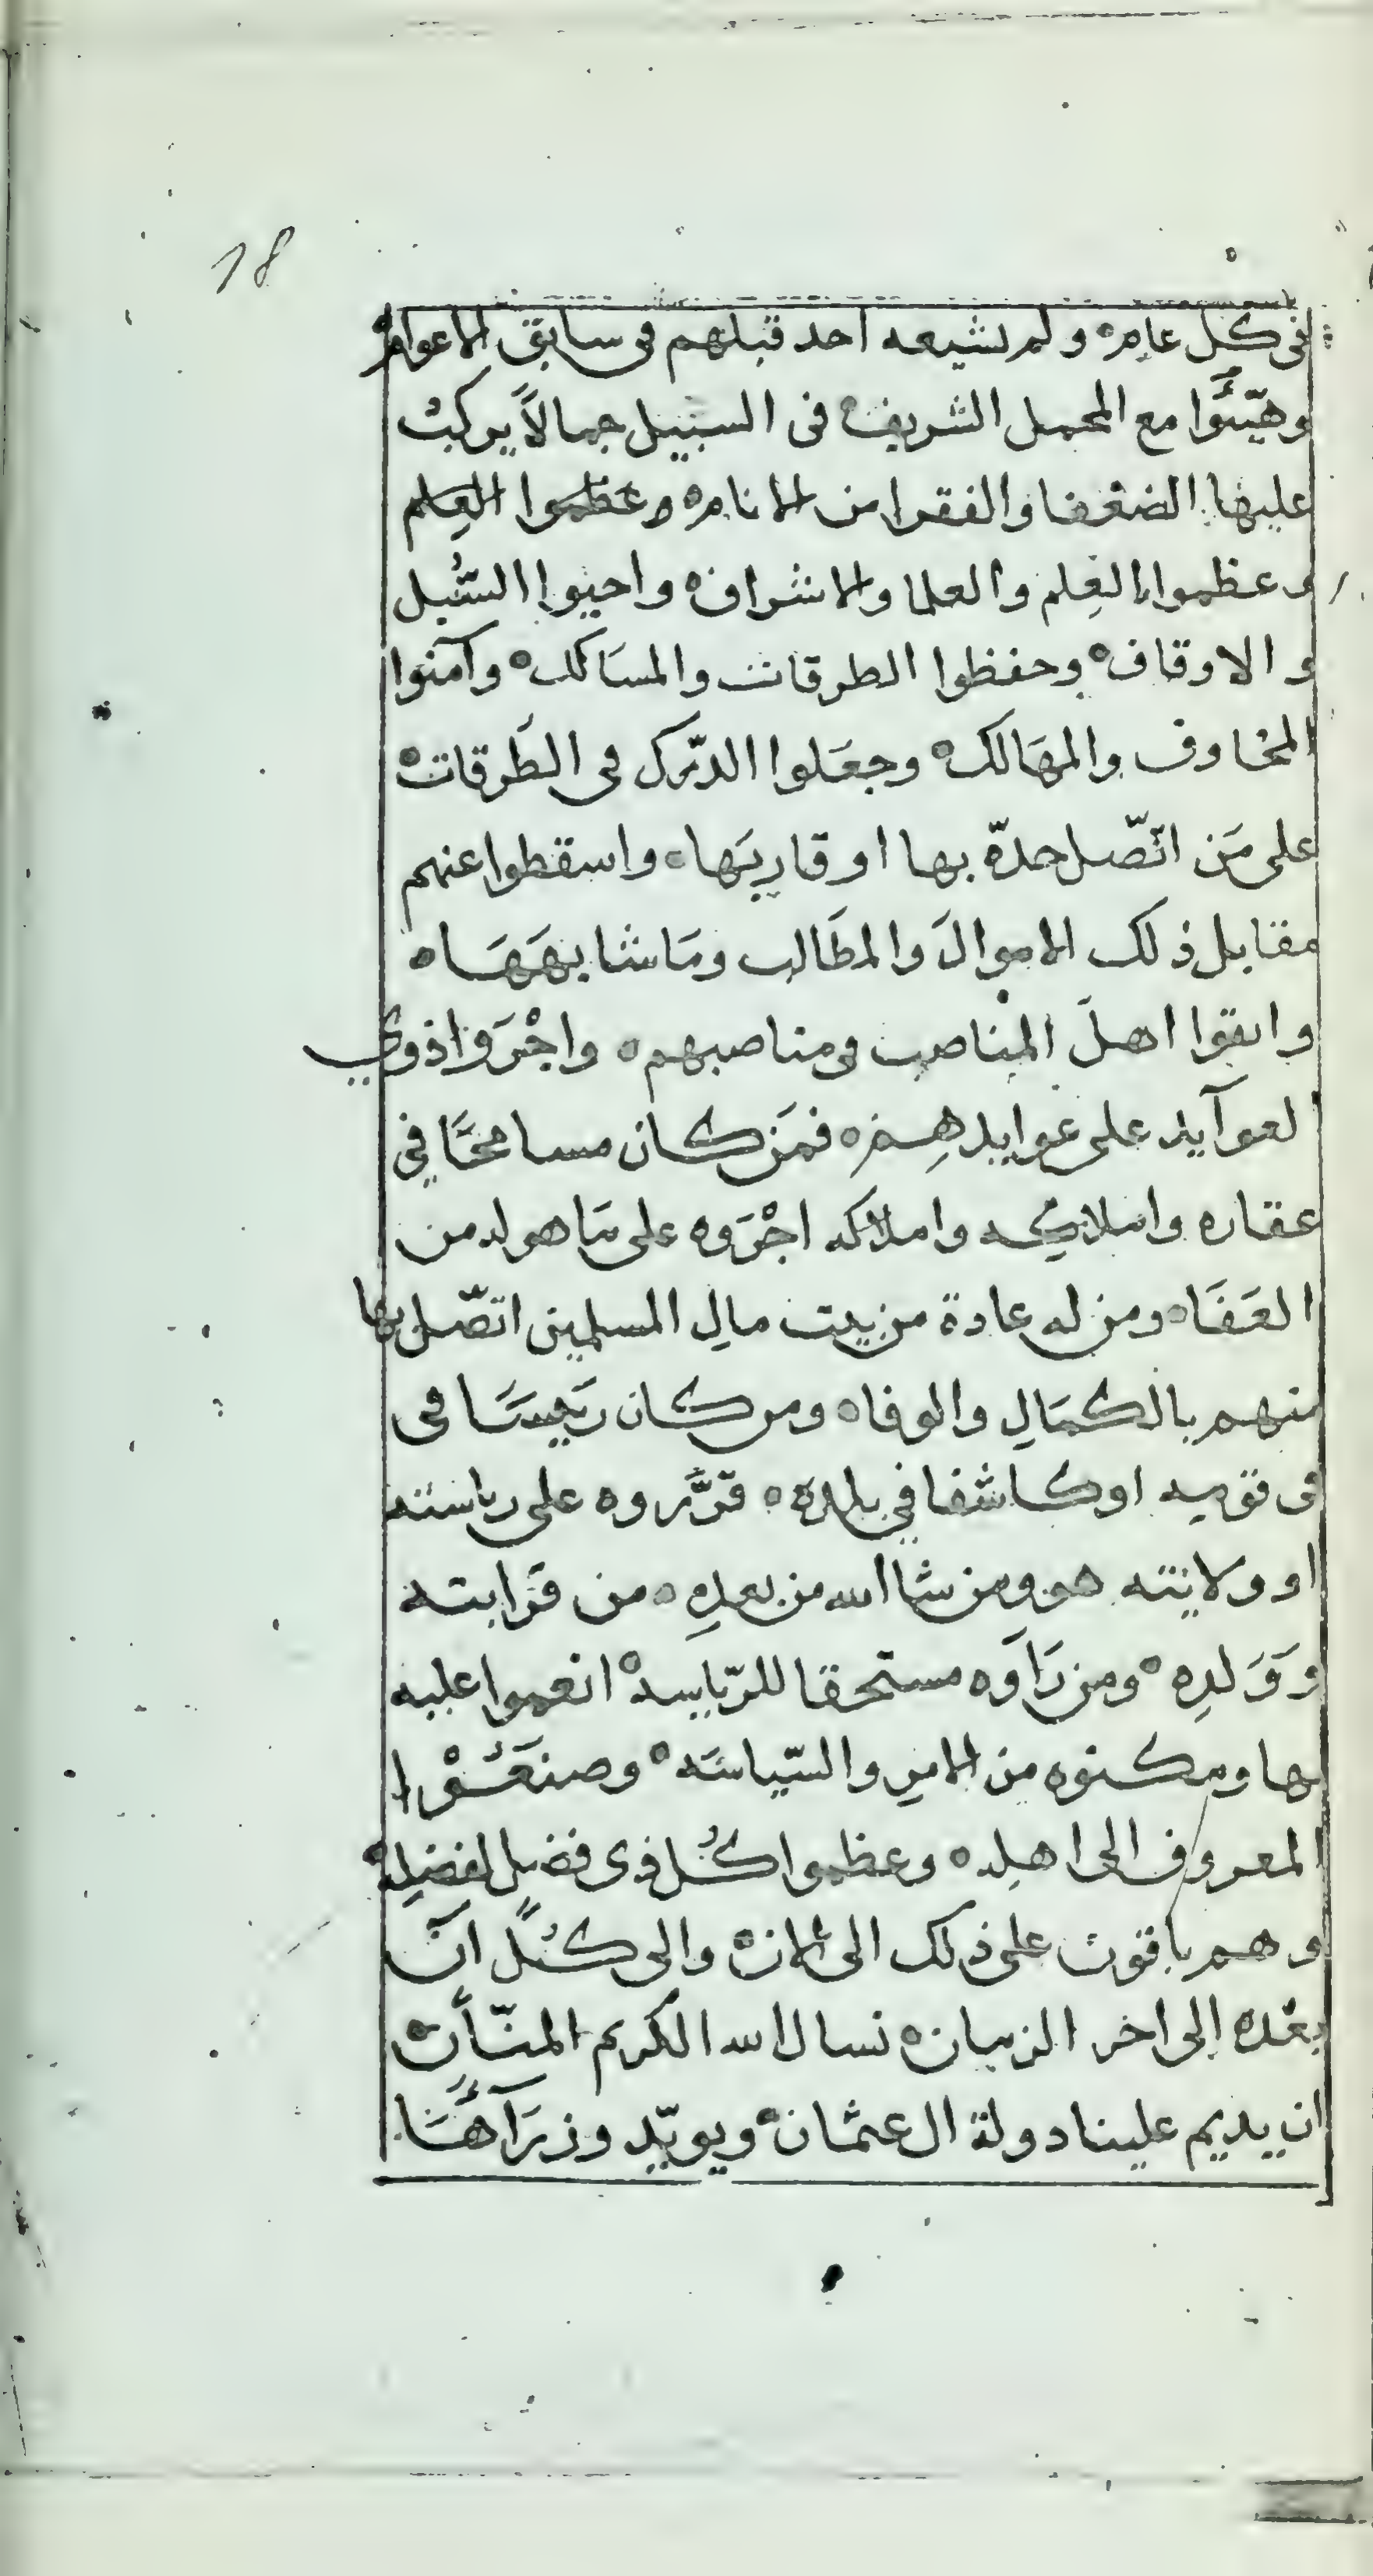 18
في كل عام ه ولم نشيعه احد قبلهم في سابق الاعوام ه
وهيّئَوا مع المحمل الشريف ه فى السبيل جمالاً يركبُ
عليها الضعفا والفقرا من الانام ه وعظموا العِلم
وعظموا العِلم والعلما والاشراف ه واحيوا السُّبل
والاوقاف ه وحفظوا الطرقات والمسَالك ه وآمنوا
المخاوف والمهَالك ه وجعَلوا الدّرك فى الطَرقات ه
على مَن اتّصل حدّه بها او قاربَها ه واسقطوا عنهم
مقابل ذلك الاموالَ والمطَالب ومَا شابهَهَا ه
وابقوا اهلَ المناصب فى مناصبهم ه واجْرَوا ذوي
العوآيد على عوايدهِم ه فمَن كان مسامحًا في
عقاره واملاكه واملاكه اجْرَوه على مَا هو له من
العَفَا ه ومن له عادة من بيت مالِ المسلمين اتصّل بها
منهم بالكمَالِ والوفا ه ومن كان رَييسًا فى
فى قومه او كاشفا في بلده ه قرَّروه على رياسته
او ولايته هو ومن شا الله من بعدِه ه من قرَابته
وَوَلدِه ه ومن رَاَوه مستحقا للرّياسه ه انعموا عليه
بها ومكنوه من الامرِ والسّياسَه ه وصنعَُوْا
المعروف الى اهلِه ه وعظموا كُل ذى فضل لفضلِه ه
وهم باقون على ذلك الى الان ه والى كُلِّ آن
بعْده إلى اخر الزمان ه نسال الله الكريم المنّان ه
ان يديم علينا دولة ال عثمان ه ويويّد وزرَآهَا